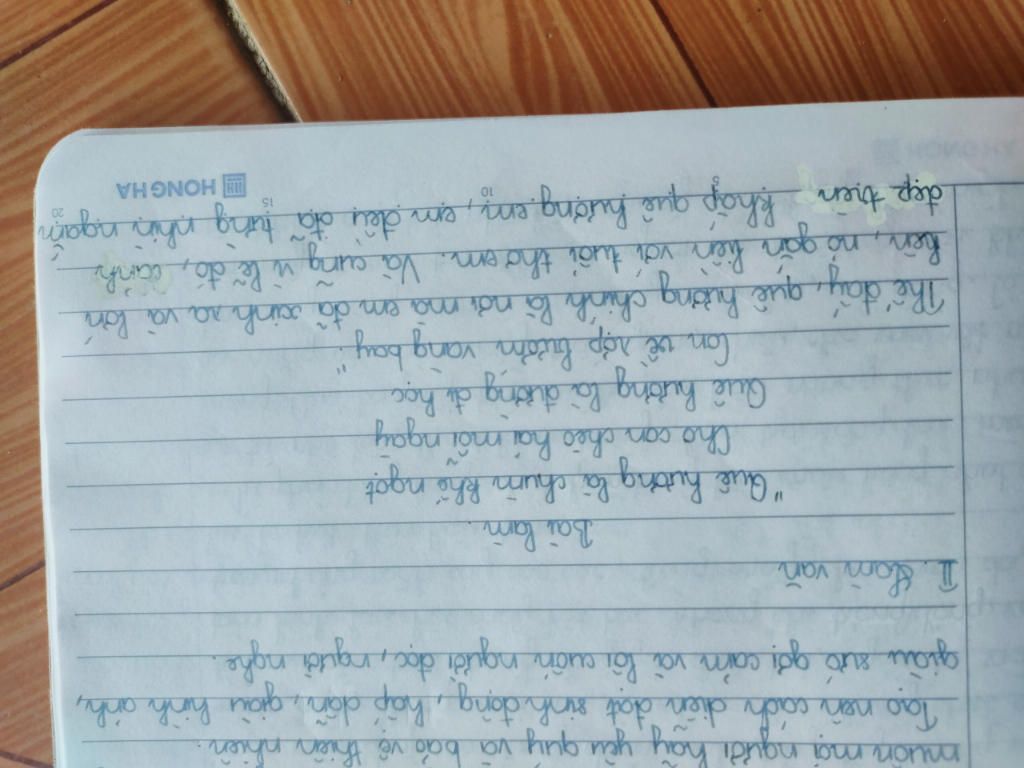 muốn mọi người hãy yêu quý và bảo vệ thiên nhiên.
Tạo nên cách diễn đạt sinh động, hấp dẫn, giàu hình ảnh,
giàu sức gợi cảm và lôi cuốn người đọc, người nghe.
II. Làm văn
Bài làm
"Quê hương là chùm khế ngọt
Cho con chèo hái mỗi ngày
Quê hương là đường đi học
Con về rợp bướm vàng bay"
Thế đấy, quê hương chính là nơi mà em đã sinh ra và lớn
lên, nó gắn liền với tuổi thơ em. Và cũng vì lẽ đó, cảnh
đẹp trên khắp quê hương em, em đều đã từng nhìn ngắm
5 10 15 20
HONG HA
HONG HA